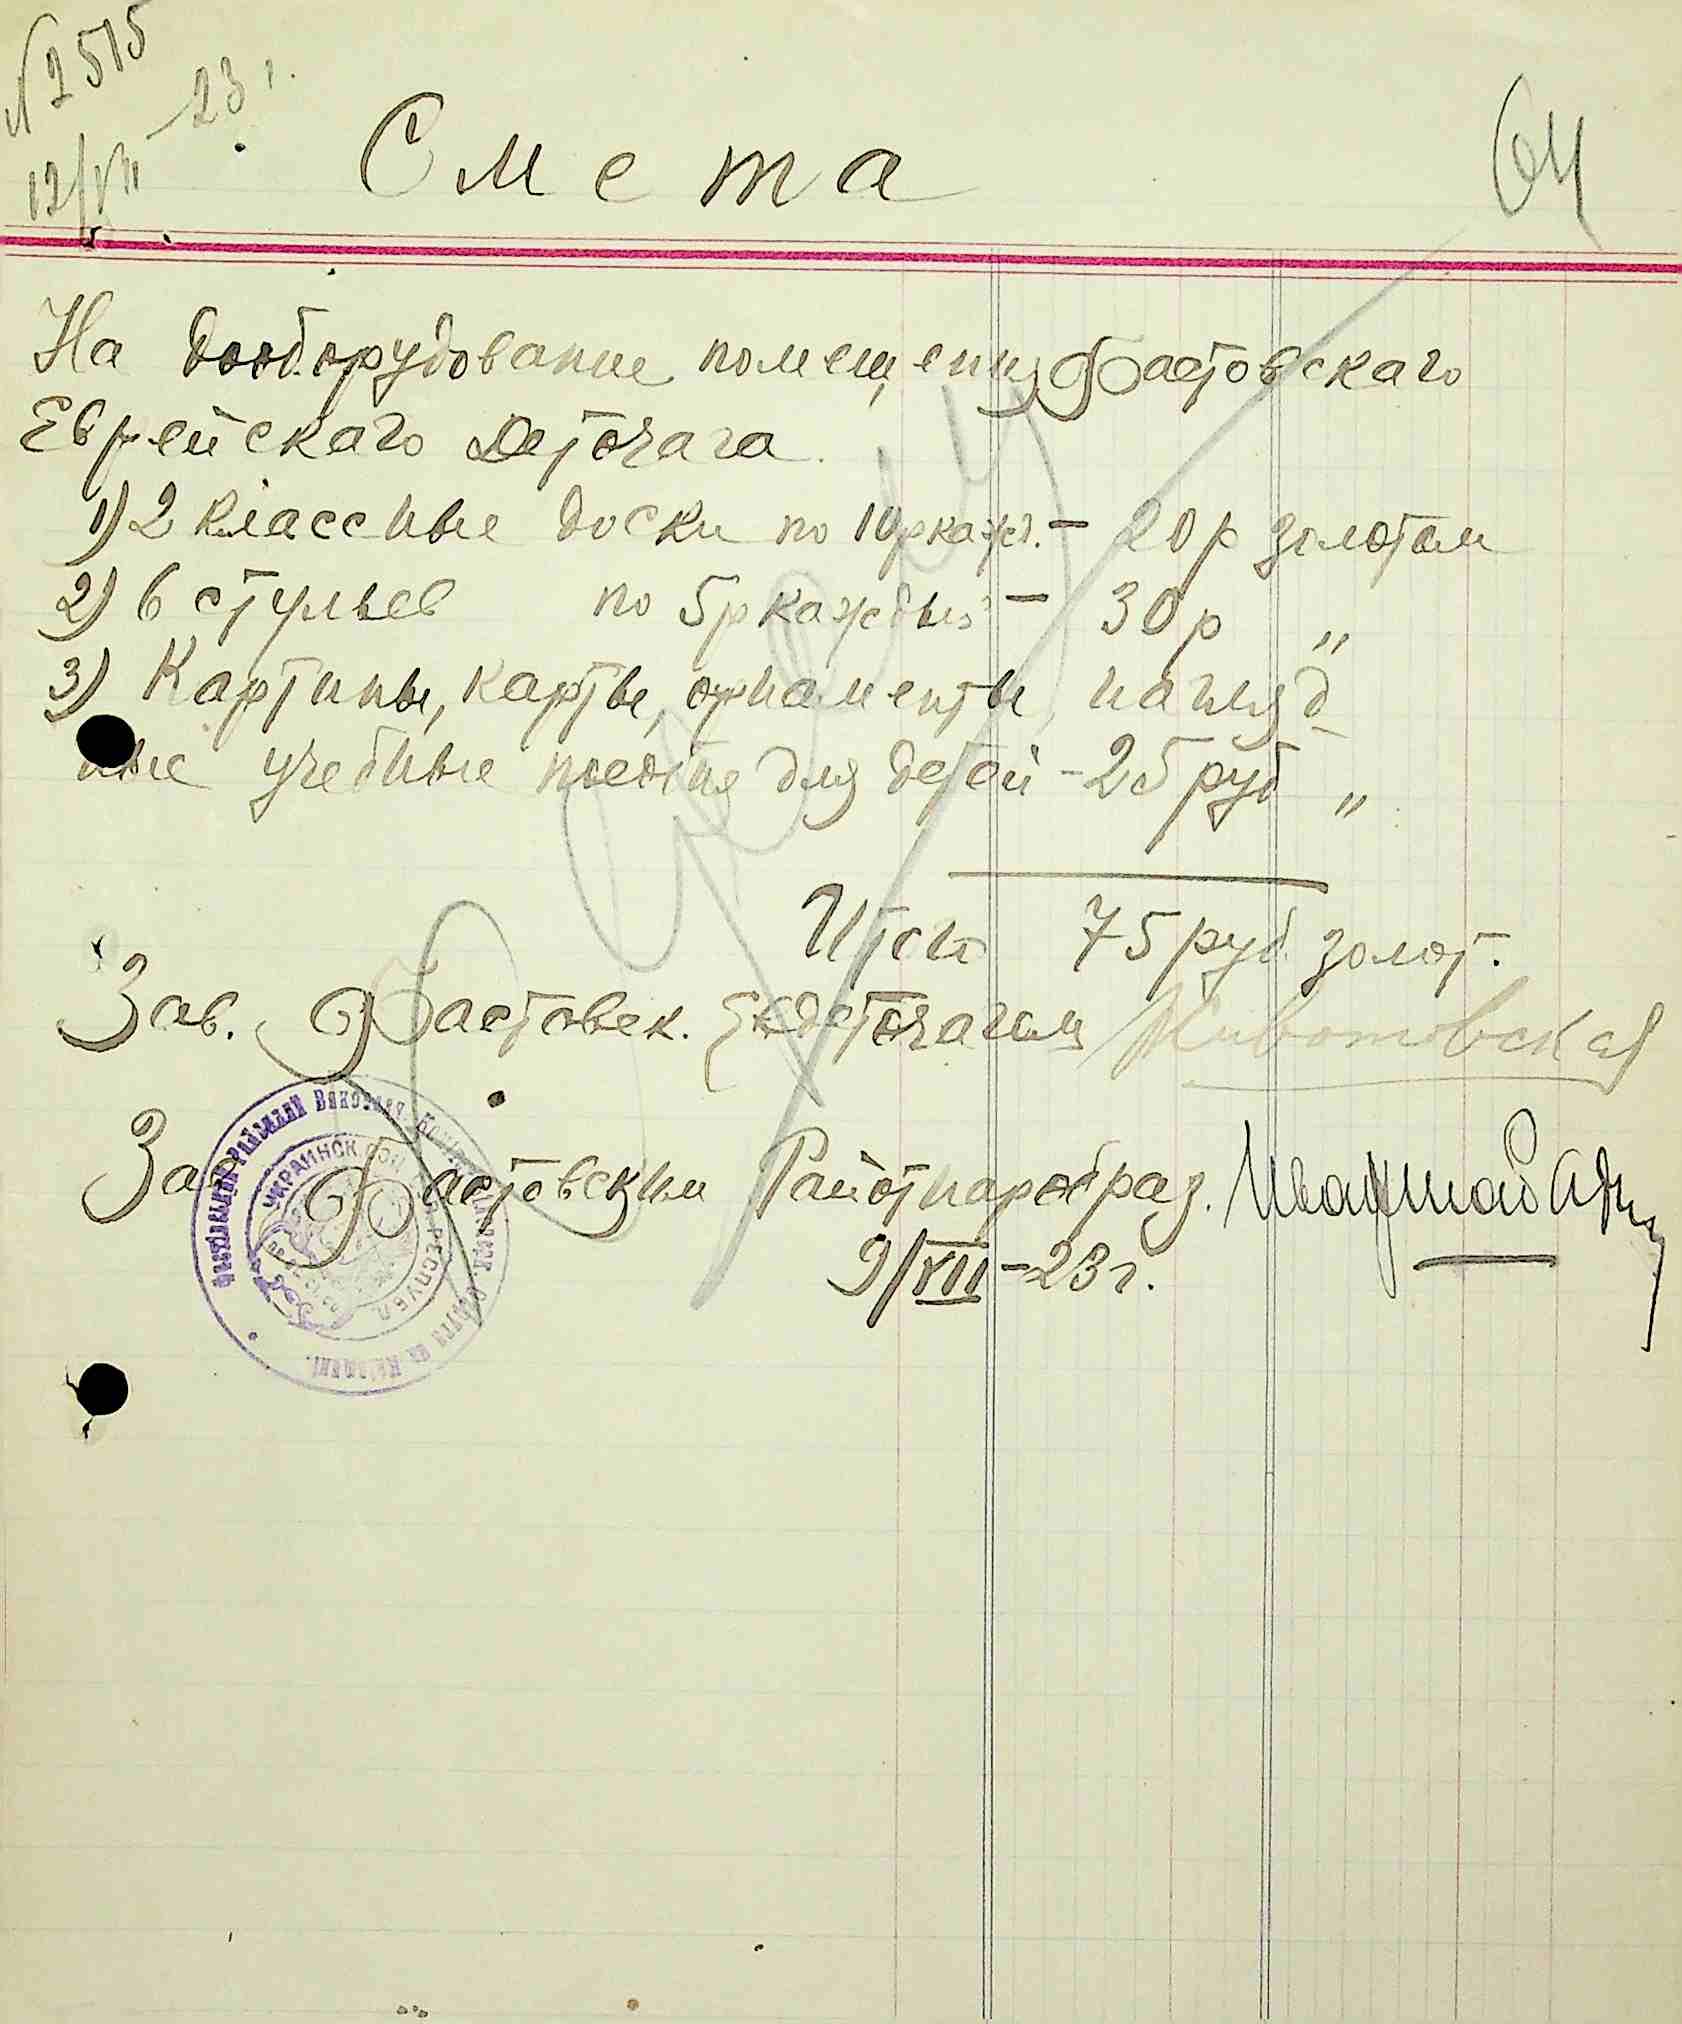 №2515
12/VII - 23 г.
64
Смета
На дооборудование помещения Фастовскаго
Еврейскаго Деточага.
1) 2 классные доски по 10р кажд. - 20 р золотом
2) 6 стульев по 5р каждый - 30 р "
3) Картины, карты, орнаменты, нагляд
ные учебные пособия для детей - 25 руб "
Итого 75 руб. золот.
Зав. Фастовск. Евдеточагом Животовская
Зав Фастовским Райотнаробраз.
9/VII - 23 г.
УКРАИНСК. СОЦ. РЕСПУБЛ.